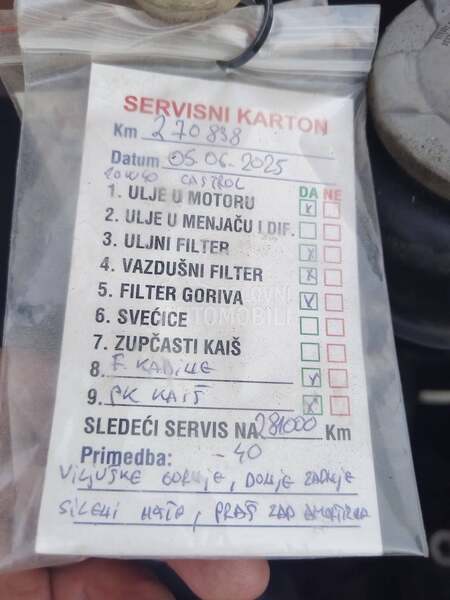 SERVISNI KARTON
Km 270838
Datum 05.06.2025
10W40 CASTROL DA NE
1. ULJE U MOTORU
2. ULJE U MENJAČU I DIF.
3. ULJNI FILTER
4. VAZDUŠNI FILTER
5. FILTER GORIVA
6. SVEĆICE
7. ZUPČASTI KAIŠ
8. F. KABINE
9. PK KAIŠ
SLEDEĆI SERVIS NA 281000 Km
Primedba: -40
VILJUŠKE GORNJE, DONJE ZADNJE
SILENI, PRAŠ ZAD